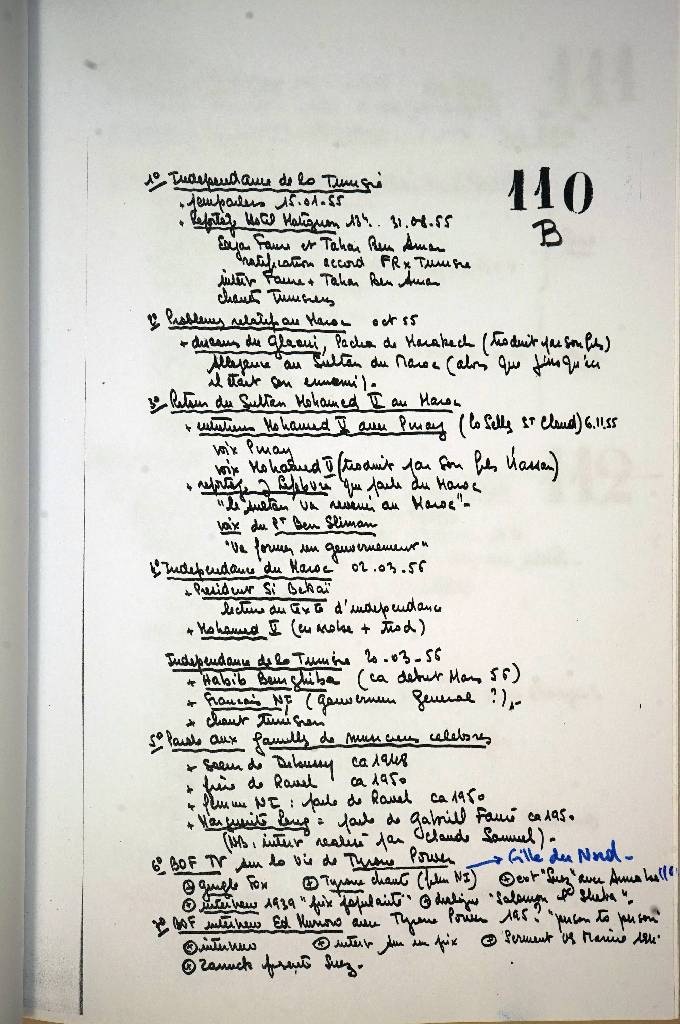 110
B
1° Independance de la Tunisie
+ 15.01.55
+ Reportage Hotel Matignon 13h.. 31.08.55
Edgar Faure et Tahar Ben Amar
ratification accord FR x Tunisie
interv Faure + Tahar Ben Amar
chants Tunisiens
2° Problemes relatif au Maroc oct 55
+ discours du Glaoui, Pacha de Marakech (traduit par son fils)
Allegeance au Sultan du Maroc (alors que jusqu'ici
il était son ennemi).
3° Retour du Sultan Mohamed V au Maroc
+ entretien Mohamed V avec Pinay (La Selle St Cloud) 6.11.55
voix Pinay
voix Mohamed V (traduit par son fils Hassan)
+ reportage J Lefebvre qui parle du Maroc
"le sultan va revenir au Maroc"-
voix du Pt Ben Sliman
"va former un gouvernement"
4° Independance du Maroc 02.03.56
+ President Si Bekaï
lecture du texte d'independance
+ Mohamed V (en arabe + trad)
Independance de la Tunisie 20-03-56
+ Habib Bourghiba (ca debut Mars 56)
+ Francais NI (gouverneur General ?).-
+ chant tunisien
5° Parole aux familles de musiciens celebres
+ Soeur de Debussy ca 1948
+ frère de Ravel ca 1950
+ femme NI : parle de Ravel ca 1950
+ Marguerite Long = parle de Gabriel Fauré ca 195-
(NB: interv realisé par Claude Samuel).-
6° BOF TV sur la vie de Tyrone Power → Gille du Nord-
+ gingle Fox + Tyrone chante (film NI) + ext "Suez" avec Annabella
+ interview 1939 "prix popularité" + dialogue "Salomon & Sheba".
7° BOF interview Ed Murrow avec Tyrone Power 195? "person to person"
+ interview + interv sur un prix + Serment US Marine 194-
+ Zanuck presente Suez.-